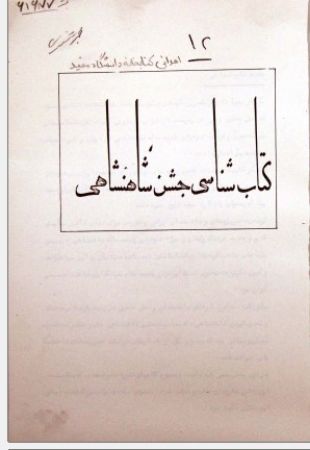 ۱۲
اهدائی کتابخانه دانشگاه مفید
کتاب‌شناسی جشن شاهنشاهی